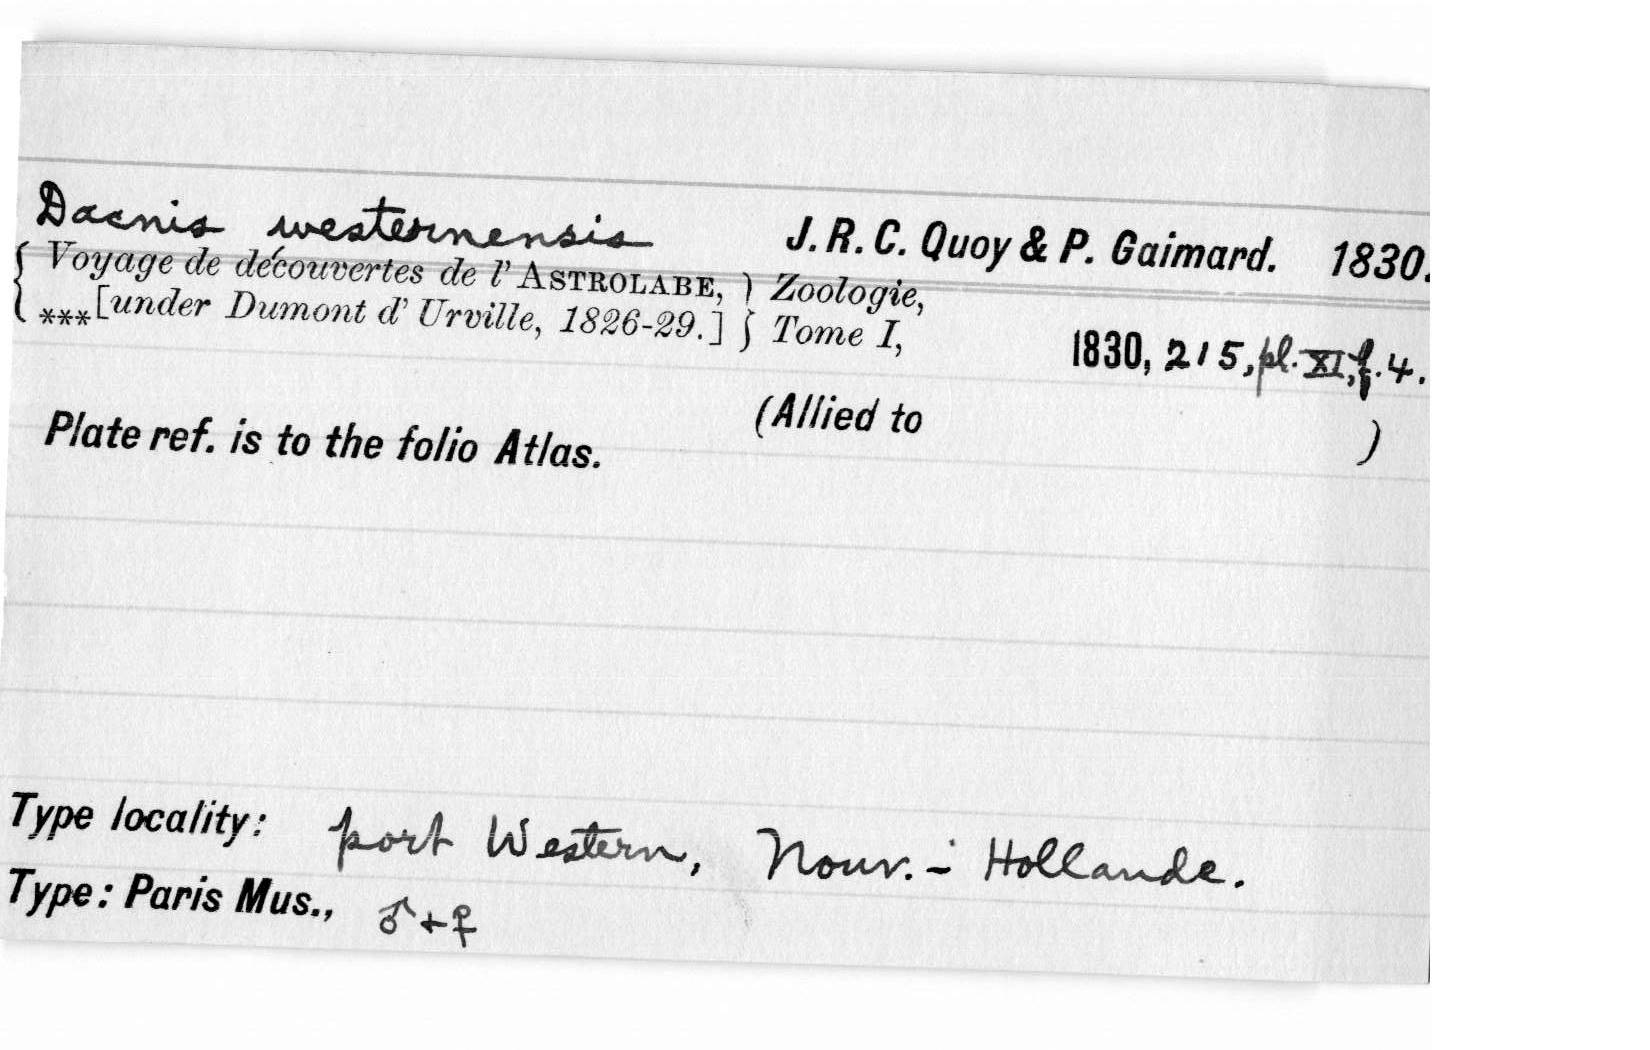 Dacnis westernensis J. R. C. Quoy & P. Gaimard. 1830.
{ Voyage de découvertes de l' ASTROLABE, } Zoologie,
***[under Dumont d' Urville, 1826-29.] } Tome I,
1830, 215, pl. XI, f. 4.
(Allied to )
Plate ref. is to the folio Atlas.
Type locality: port Western, Nouv.- Hollande.
Type: Paris Mus., ♂ + ♀